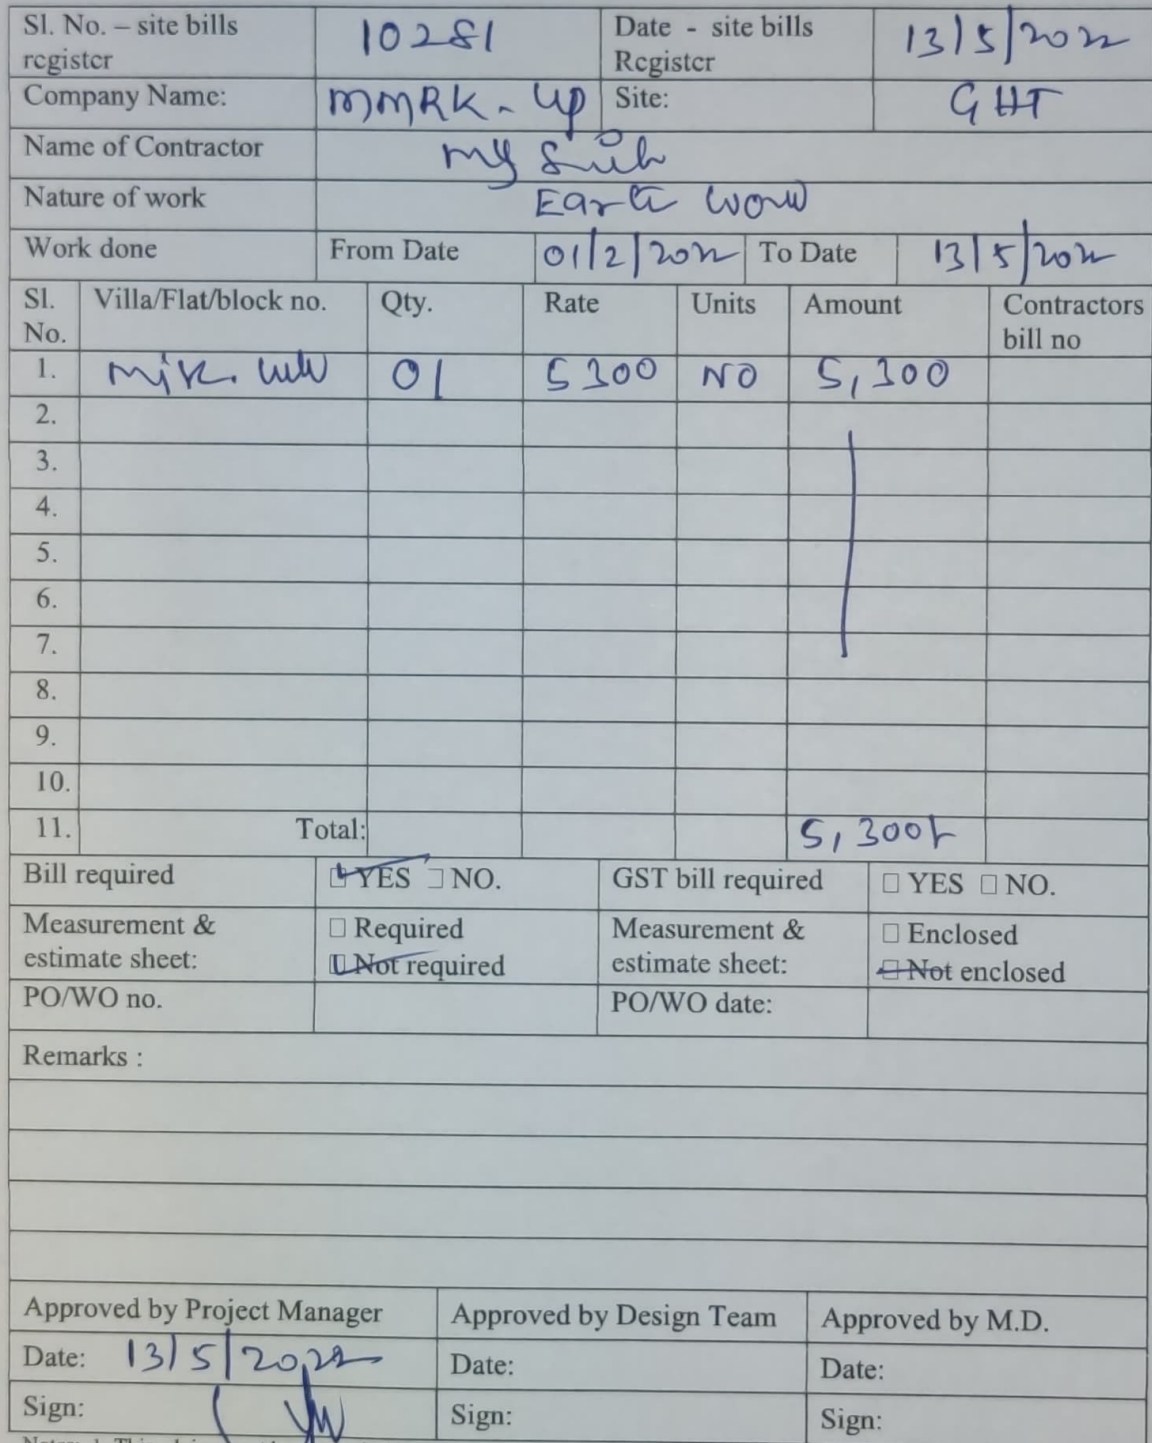 Sl. No. – site bills register 10281 Date - site bills Register 13/5/2022
Company Name: MMRK-Up Site: GHT
Name of Contractor
Nature of work Earth work
Work done From Date 01/2/2022 To Date 13/5/2022
Sl. No. Villa/Flat/block no. Qty. Rate Units Amount Contractors bill no
1. 01 5300 NO 5,300
2.
3.
4.
5.
6.
7.
8.
9.
10.
11. Total: 5,300/-
Bill required YES NO. GST bill required YES NO.
Measurement & estimate sheet: Required Not required Measurement & estimate sheet: Enclosed Not enclosed
PO/WO no. PO/WO date:
Remarks :
Approved by Project Manager Approved by Design Team Approved by M.D.
Date: 13/5/2022 Date: Date:
Sign: Sign: Sign: